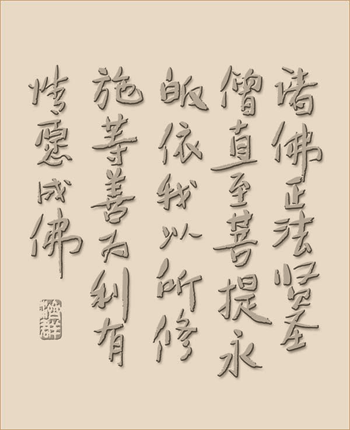 诸佛正法贤圣
僧直至菩提永
皈依我以所修
施等善为利有
情愿成佛